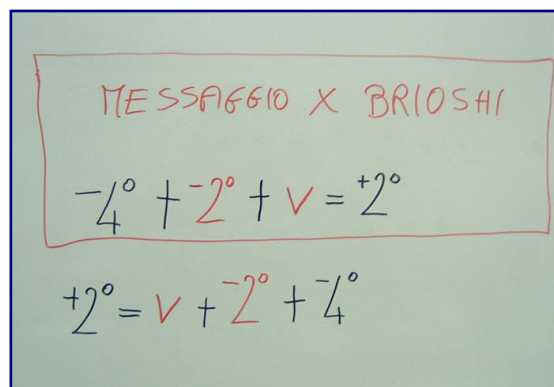 MESSAGGIO X BRIOSHI
-4° + -2° + V = +2°
+2° = V + -2° + -4°